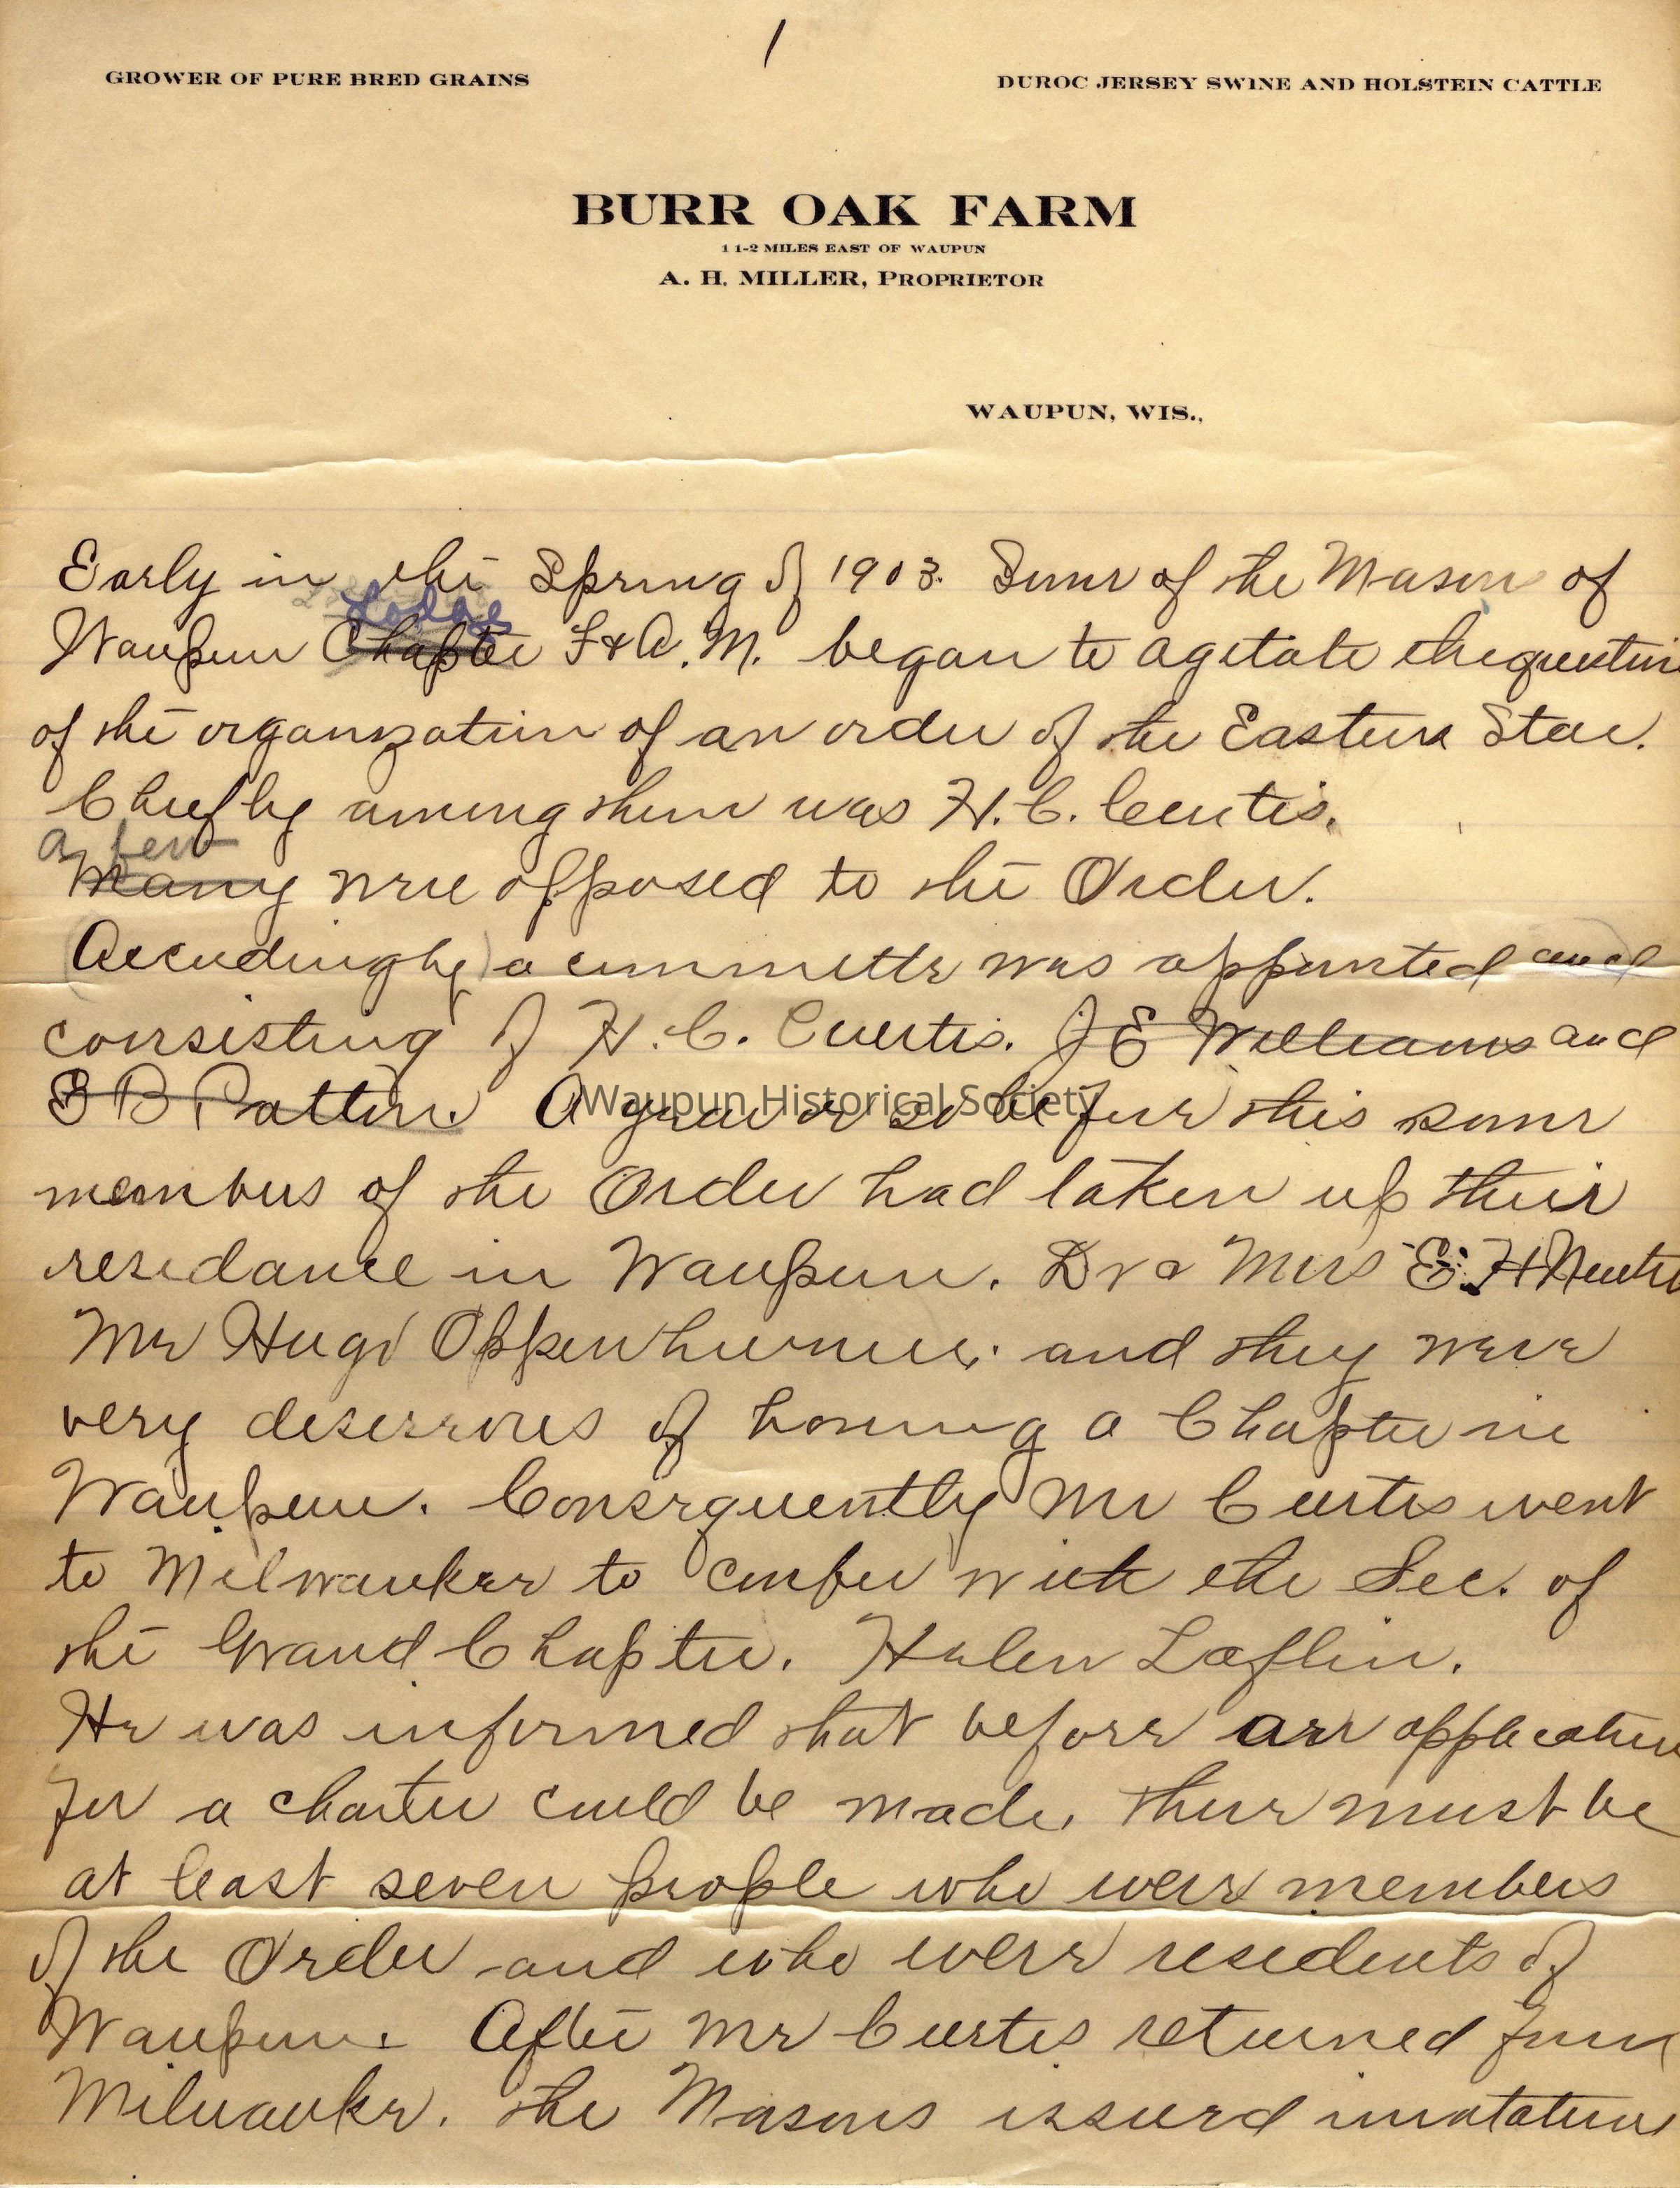 1
GROWER OF PURE BRED GRAINS
DUROC JERSEY SWINE AND HOLSTEIN CATTLE
BURR OAK FARM
1 1-2 MILES EAST OF WAUPUN
A. H. MILLER, PROPRIETOR
WAUPUN, WIS.,
Early in the Spring of 1903. Some of the Mason of
Lodge
Waupun Chapter F & A. M. began to agitate the question
of the organization of an order of the Eastern Star.
Chiefly among them was H. C. Curtis.
A few
Many were opposed to the Order.
Accordingly a committee was appointed and
consisting of H. C. Curtis. J E Williams and
B Patten. A year or so before this some
members of the Order had taken up their
residance in Waupun. Dr & Mrs E. H
Mr Hugo Oppenheimer. and they were
very deserrous of having a Chapter in
Waupun. Consequently Mr Curtis went
to Milwaukee to confer with the Sec. of
the Grand Chapter. Helen Laflin.
He was informed that before an application
for a charter could be made, there must be
at least seven people who were members
of the Order and who were residents of
Waupun. After Mr Curtis returned from
Milwauke. the Masons issued invatations
Waupun Historical Society